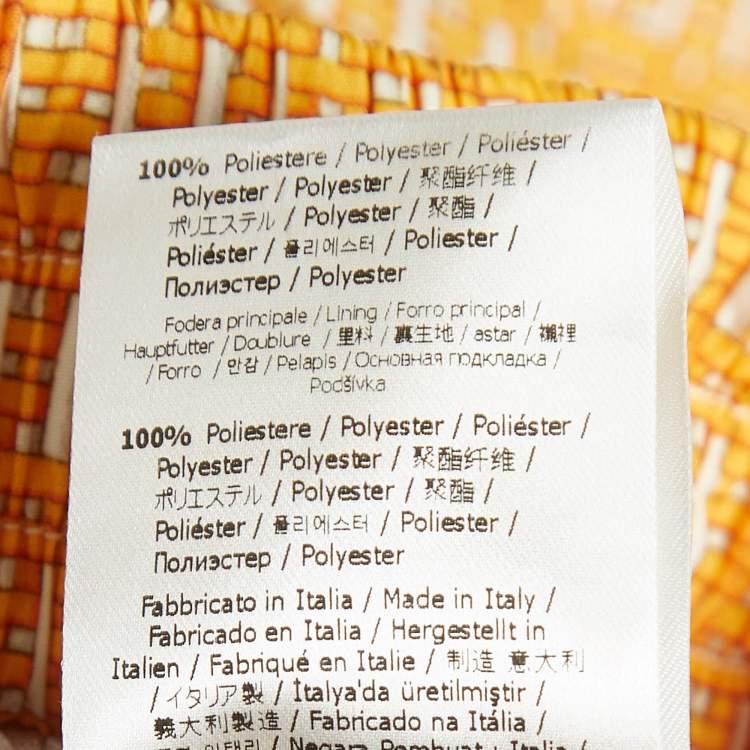 100% Poliestere / Polyester / Poliéster /
Polyester / Polyester / 聚酯纤维 /
ポリエステル / Polyester / 聚酯 /
Poliéster / 폴리에스터 / Poliester /
Полиэстер / Polyester
Fodera principale / Lining / Forro principal /
Hauptfutter / Doublure / 里料 / 裏生地 / astar / 襯裡
/ Forro / 안감 / Pelapis / Основная подкладка /
Podšívka
100% Poliestere / Polyester / Poliéster /
Polyester / Polyester / 聚酯纤维 /
ポリエステル / Polyester / 聚酯 /
Poliéster / 폴리에스터 / Poliester /
Полиэстер / Polyester
Fabbricato in Italia / Made in Italy /
Fabricado en Italia / Hergestellt in
Italien / Fabriqué en Italie / 制造 意大利
/ イタリア製 / İtalya'da üretilmiştir /
義大利製造 / Fabricado na Itália /
/ Negara Pembuat : Italia /